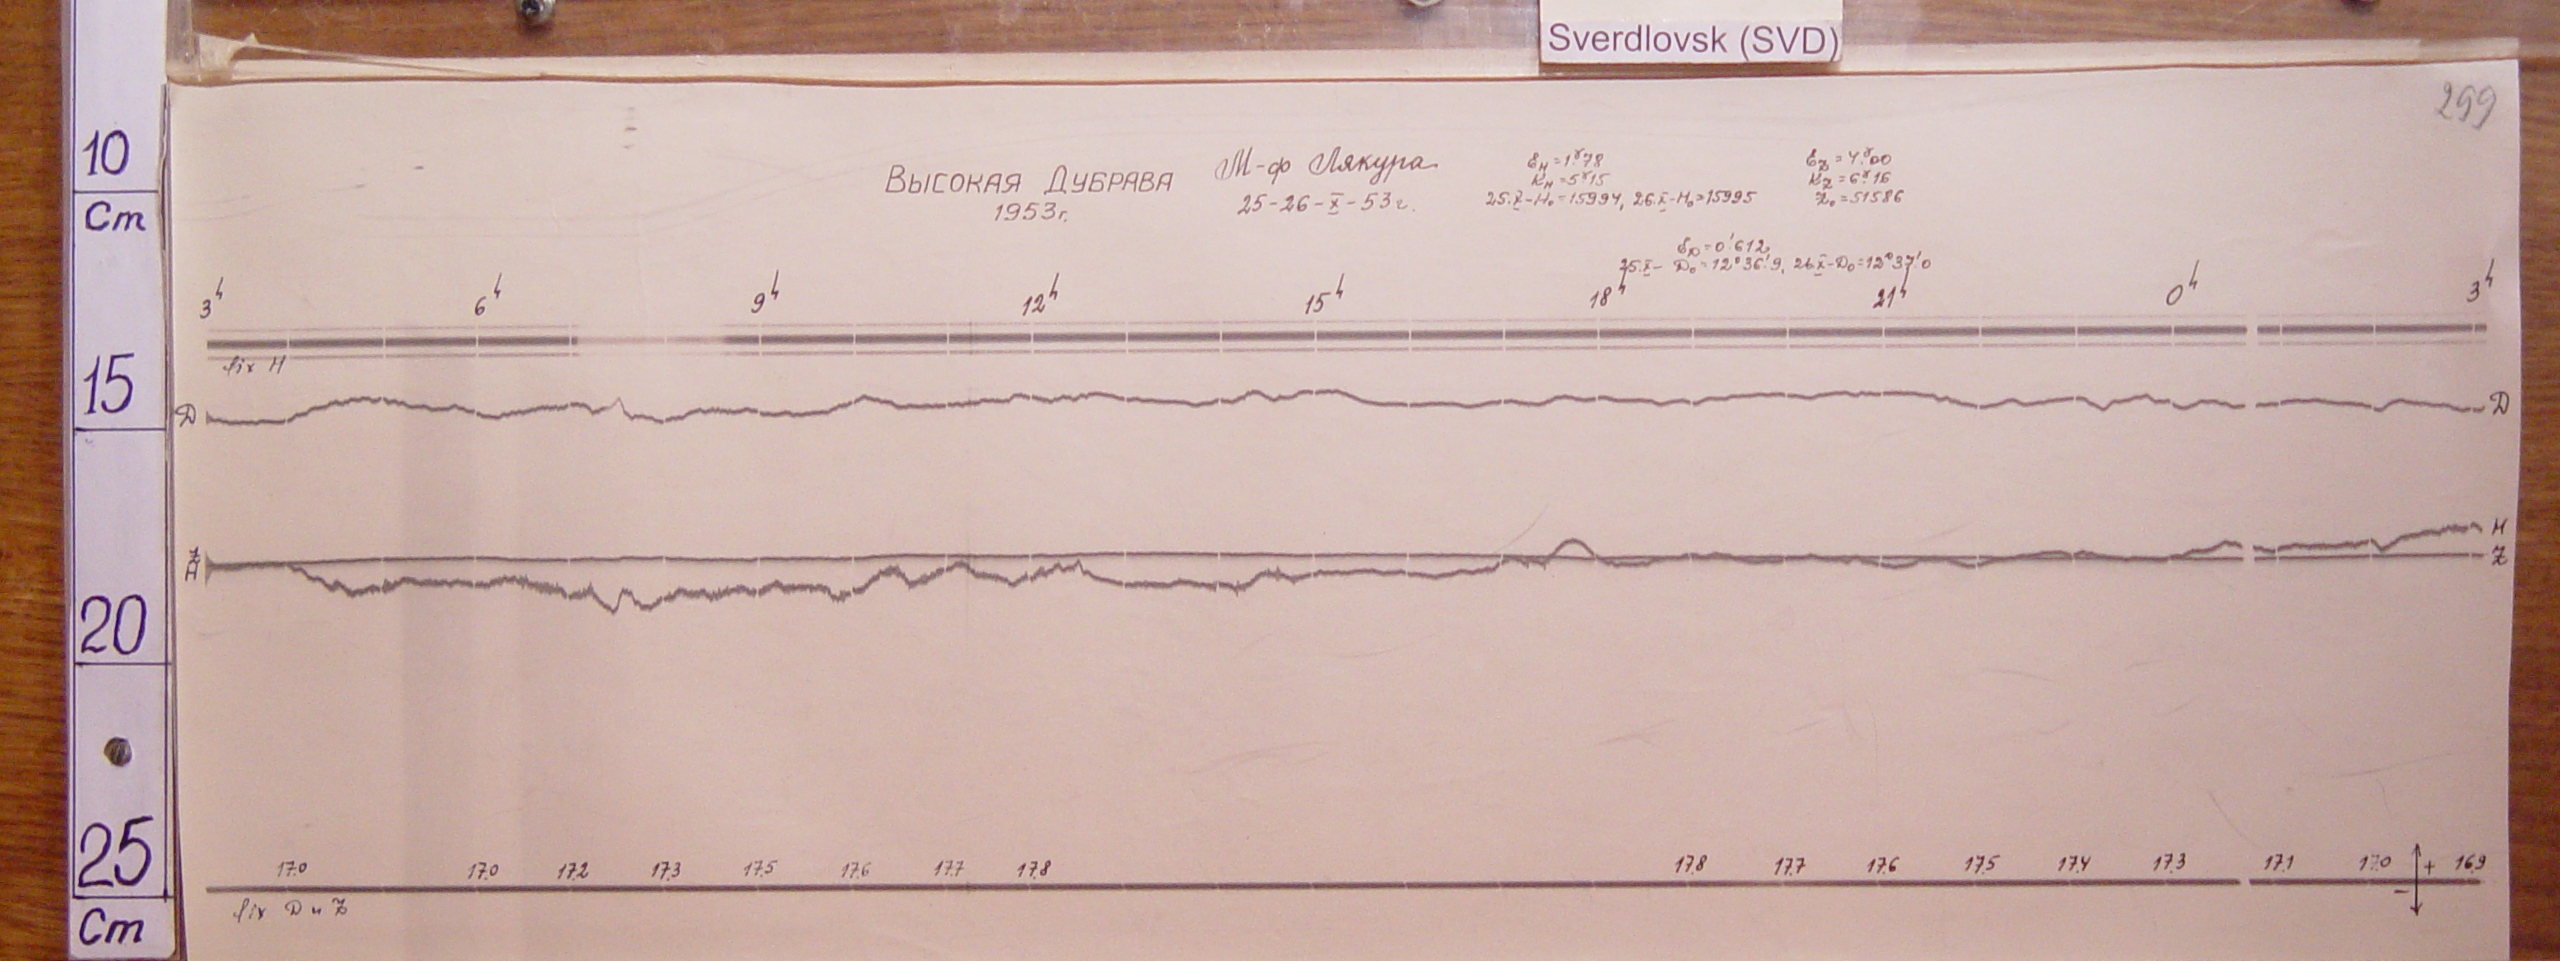 Sverdlovsk (SVD)
299
10
Cm
15
20
25
Cm
Высокая Дубрава
1953г.
М-ф Лякура
25-26-X-53г.
εH=1.γ78
KH=5γ15
25.X-H₀=15994, 26.X-H₀=15995
εZ=4.γ00
KZ=6γ16
Z₀=51586
εD=0′612
25.X- D₀=12°36′9, 26.X-D₀=12°37′0
3h 6h 9h 12h 15h 18h 21h 0h 3h
fix H
D D
Z H
H Z
17.0 17.0 17.2 17.3 17.5 17.6 17.7 17.8 17.8 17.7 17.6 17.5 17.4 17.3 17.1 17.0 + 16.9
-
fix D и Z